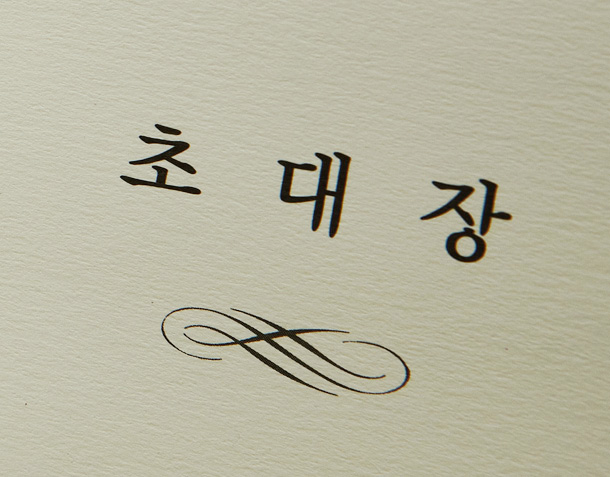 초 대 장